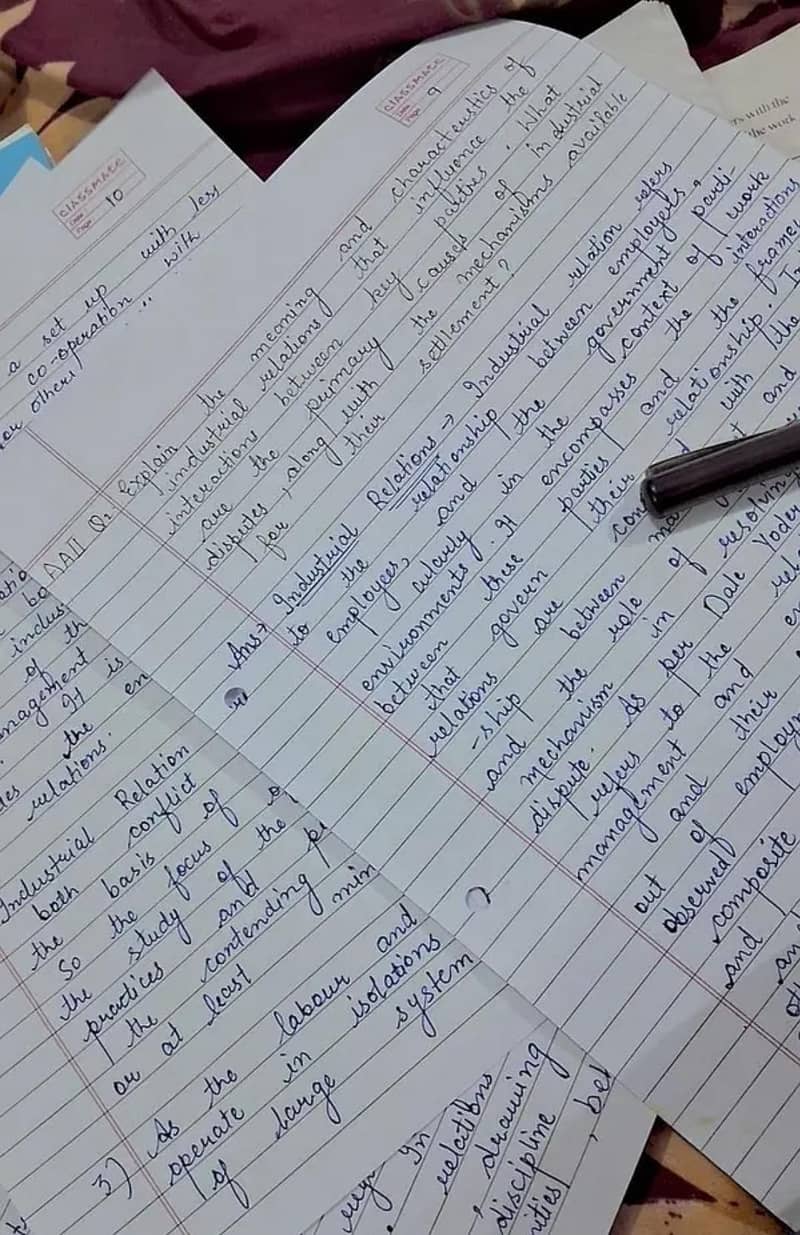 CLASSMATE
Date
Page 9
Q2. Explain the meaning and characteristics of
industrial relations that influence the
interactions between parties. What
are the primary key causes of industrial
disputes, along with the mechanisms available
for their settlement?
Ans→ Industrial Relations → Industrial relation refers
to the relationship between employers,
employees, and the government, parti-
cularly in the context of work
environments. It encompasses the interactions
between these parties and the
that govern their relationship.
relations are with the
-ship between and
and the role of resolving
mechanism in
dispute. As per Dale Yoder
refers to the
management and
out and their
observed of
composite
and
CLASSMATE
Date
Page 10
a set up with less
co-operation with
other.
indus
of th
It is
the en
relations.
Industrial Relation
both conflict
the basis of
So the focus of
the study of the
practices and
the contending
or at least min
3) As the labour and
operate in isolations
of large system
In
relations
, drawing
discipline
, bet
rs with the
the work